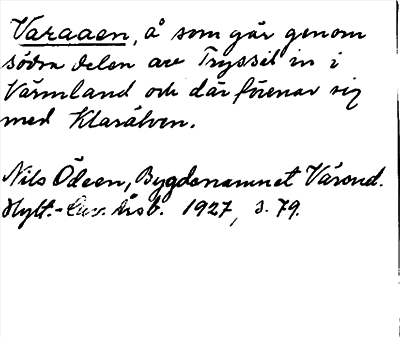 Varaaen, å som går genom
södra delen av Tryssil in i
Värmland och där förenar sig
med Klarälven.
Nils Ödeen, Bygdenamnet Värend.
Hylt.-Cav. Årsb. 1927, s. 79.